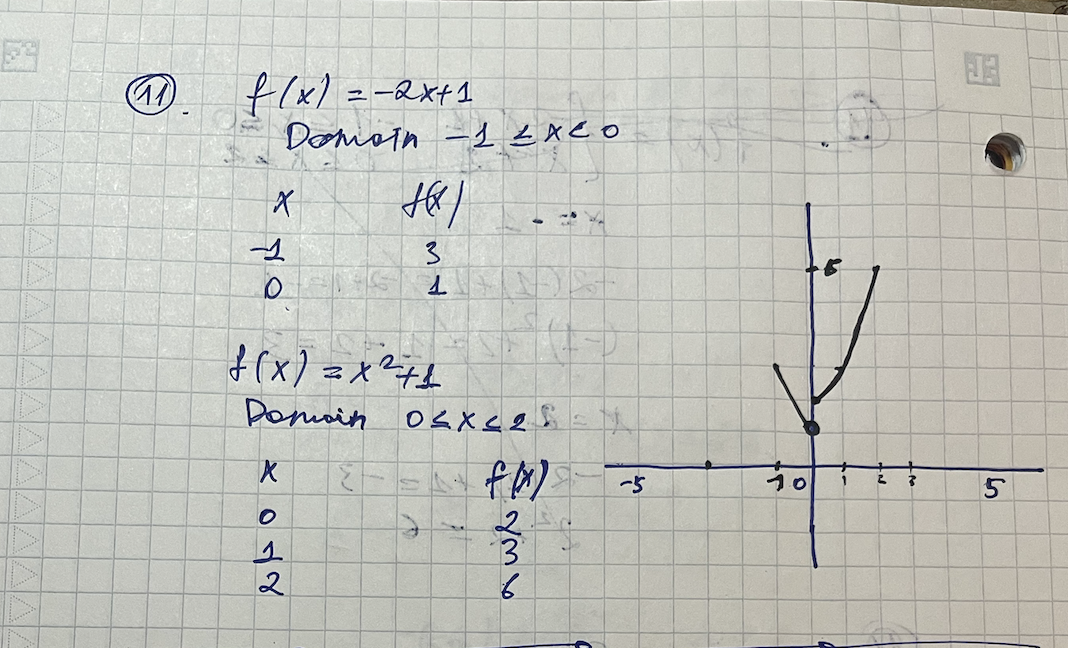 11.
f(x) = -2x+1
Domain -1 ≤ x < 0
x f(x)
-1 3
0 1
f(x) = x²+1
Domain 0 ≤ x ≤ 2
x f(x)
0 2
1 3
2 6
5
-5 -1 0 1 2 3 5